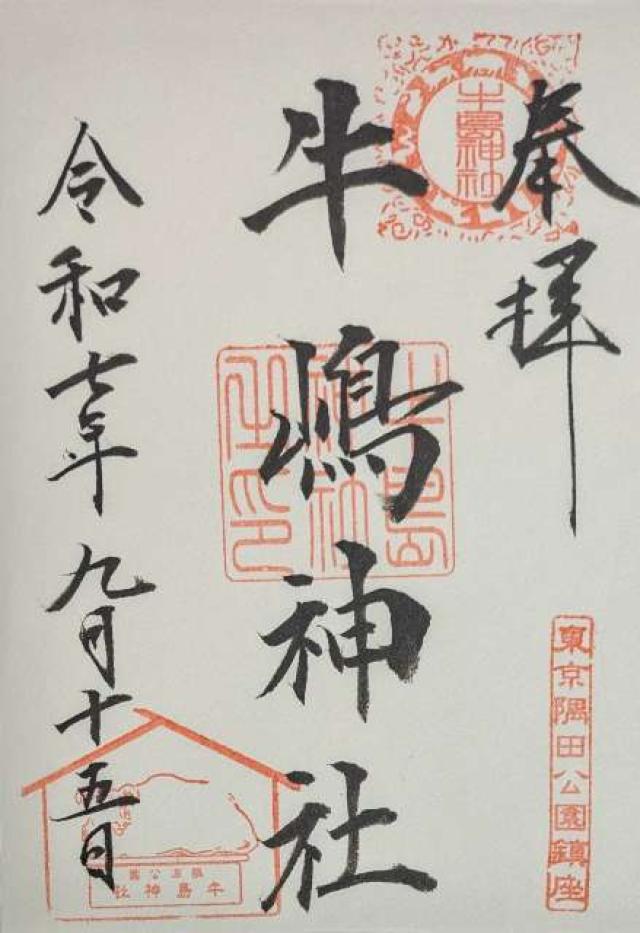 奉拝
牛嶋神社
令和七年九月十五日
牛島神社
牛島神社之印
東京隅田公園鎮座
隅田公園
牛島神社